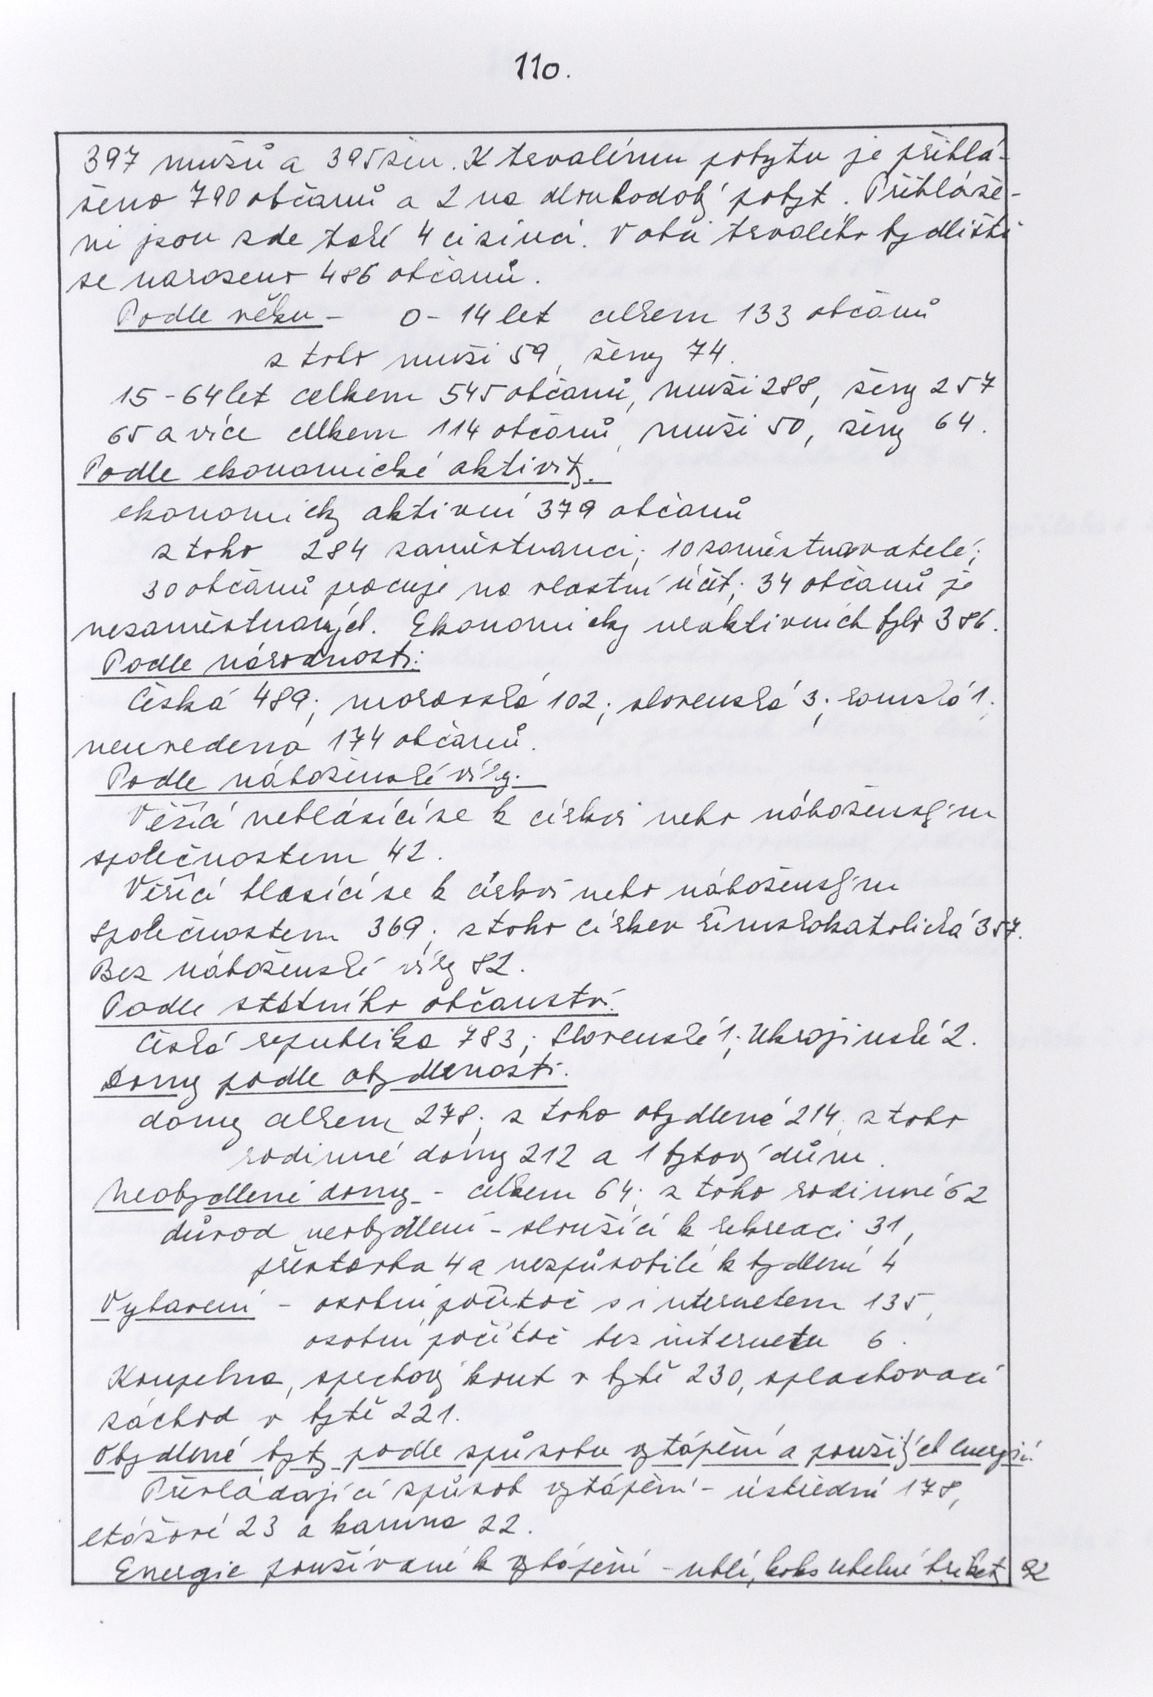 110.
397 mužů a 395 žen. K trvalému pobytu je přihlá-
šeno 790 občanů a 2 na dlouhodobý pobyt. Přihláše-
ni jsou zde také 4 cizinci. V obci trvalého bydliště
se narozeno 486 občanů.
Podle věku - 0-14 let celkem 133 občanů
z toho muži 59, ženy 74.
15-64 let celkem 545 občanů, muži 288, ženy 257
65 a více celkem 114 občanů, muži 50, ženy 64.
Podle ekonomické aktivity.
ekonomicky aktivní 379 občanů
z toho 284 zaměstnanci; 10 zaměstnavatelé;
30 občanů pracuje na vlastní účet; 34 občanů je
nezaměstnaných. Ekonomicky neaktivních bylo 386.
Podle národnosti:
Česká 489; moravská 102; slovenská 3; romská 1;
neuvedeno 174 občanů.
Podle náboženské víry.
Věřící nehlásící se k církvi nebo náboženským
společnostem 42.
Věřící hlásící se k církvi nebo náboženským
společnostem 369; z toho církev římskokatolická 357.
Bez náboženské víry 82.
Podle státního občanství.
Česká republika 783; Slovenské 1; Ukrajinské 2.
Domy podle obydlenosti.
domy celkem 278; z toho obydlené 214, z toho
rodinné domy 212 a 1 bytový dům.
Neobydlené domy - celkem 64; z toho rodinné 62
důvod neobydlení - sloužící k rekreaci 31,
přestavba 4 a nezpůsobilé k bydlení 4
Vybavení - osobní počítač s internetem 135,
osobní počítač bez internetu 6.
Koupelna, sprchový kout v bytě 230, splachovací
záchod v bytě 221.
Obydlené byty podle způsobu vytápění a použitých energií.
Převládající způsob vytápění - ústřední 178,
etážové 23 a kamna 22.
Energie používané k vytápění - uhlí, koks uhelné brikety 92